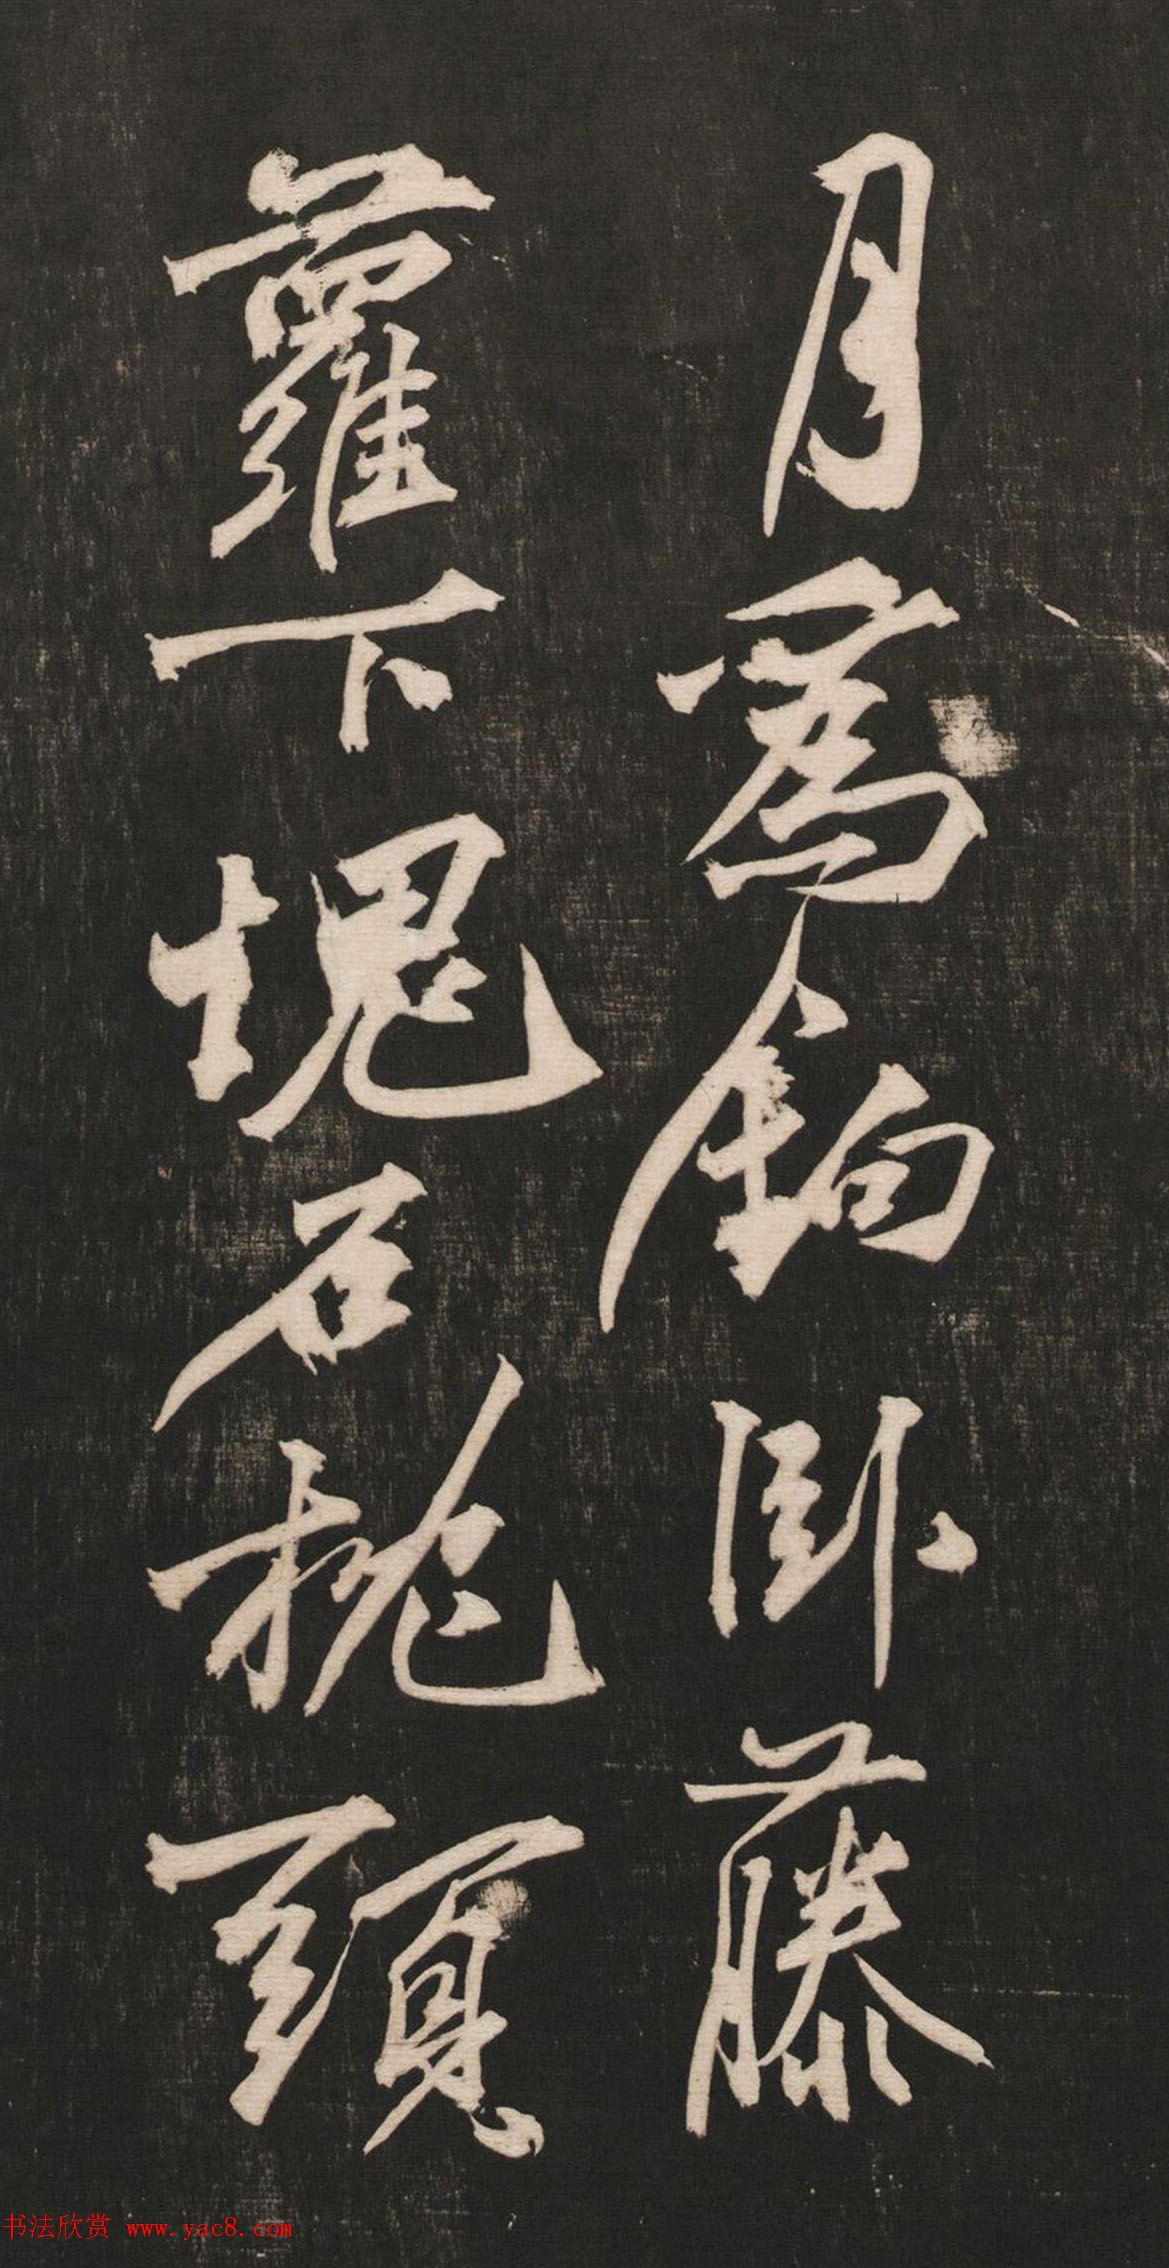 月為鉤臥藤
蘿下塊石枕頭
书法欣赏 www.yac8.com